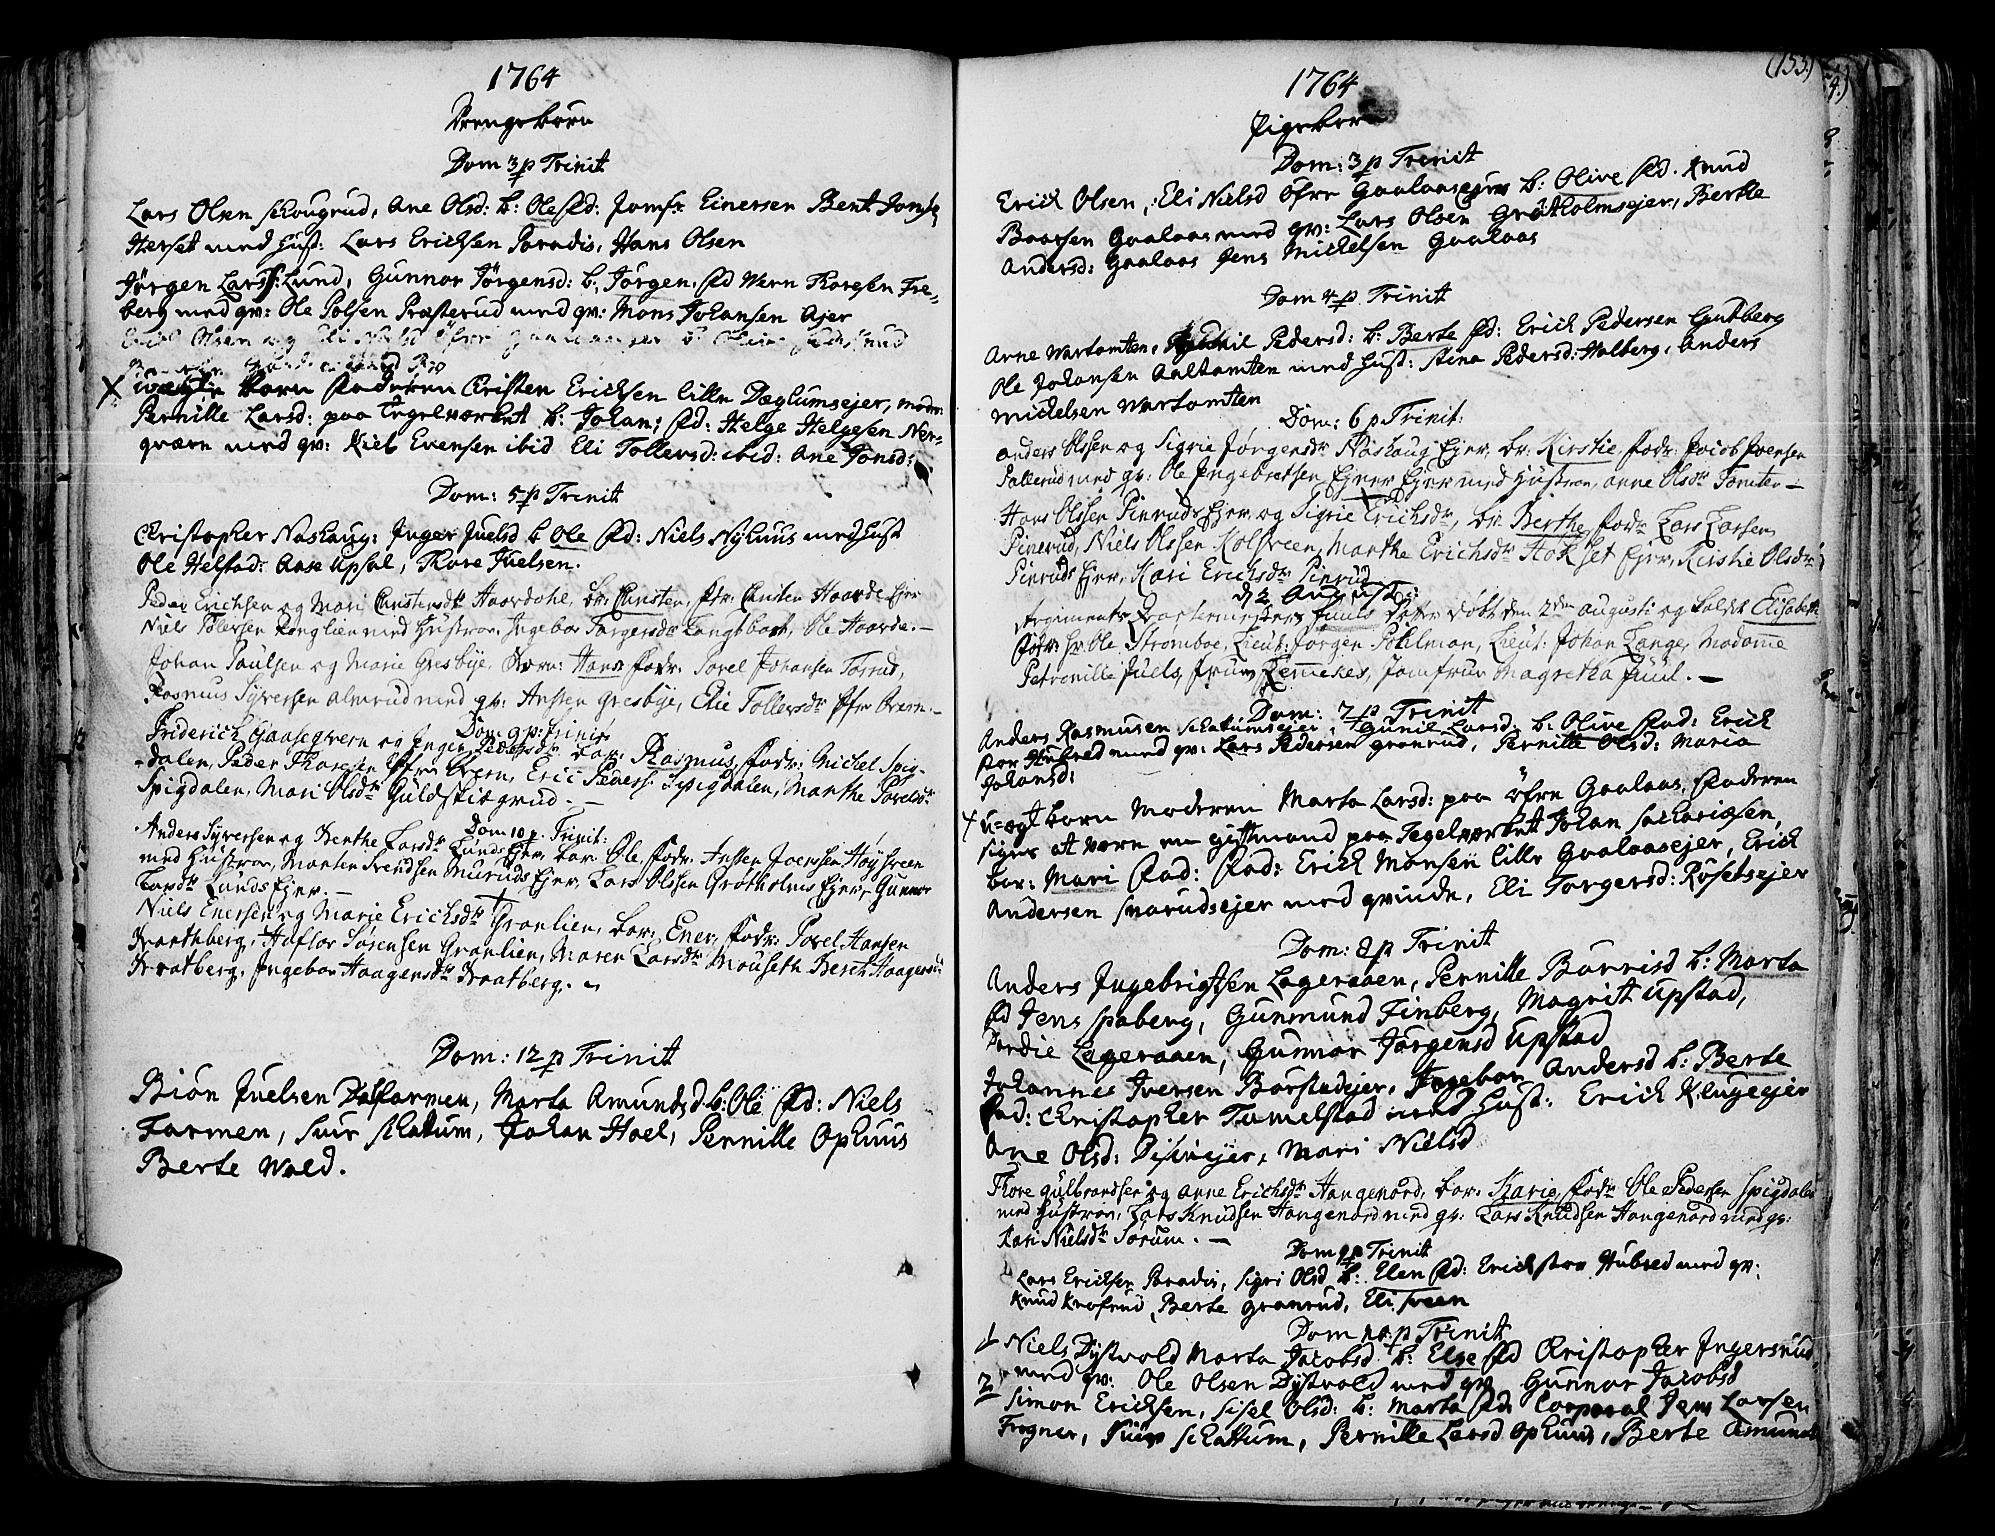 1764
Drengebørn
Dom 3 p Trinit
Lars Olsen Schougrud, Ane Olsd: b: Ole fd: Jomfr Einersen Bent
Herset med hust: Lars Erichsen Paradis, Hans Olsen
Jørgen Larss: Lund, Gunnor Jørgensd: b: Jørgen. fd Wern Thoresen Fre-
berg med qv: Ole Polsen Præsterud med qv: Mons Johansen Ajer
Erich Olsen og Eli
X uægte barn faderen Cristen Ericksen lille Dæglumsejer, moder
Pernille Larsd: paa Tegelværket b: Johan; fd: Helge Helgesen Ner-
qværn med qv: Kield Evensen ibid Eli Tollersd: ibid: Ane Jonsd:
Dom: 5 p Trinit
Christopher Naskaug: Inger Juelsd b Ole fd: Niels Nyhuus med hust
Ole Helstad: Aase Upsal, Thore Juelsen.
Peder Erichsen og Mari Christensdr Haardahl, br: Christen, fdr: Christen Haarde Ejer
Niels Tollersen Longlien med Hustroe, Ingebor Torgersdr Langback, Ole Haarde. -
Johan Paulsen og Marie Gresbye, barn: Hans fadr: Povel Johansen Torrud,
Rasmus Syversen Almrud med qv: Ansten Gresbye, Elie Tollersdr Øfre Qvern. -
Dom 9 p: Trinit
Friderich Gaaseqvern og Inger Pedersdr bar: Rasmus, fadr: Michel Spig-
dalen, Peder Thoresen Øfre Qvern, Eric Peders: Spigdalen, Marthe Povelsdr
Spigdalen, Mari Olsdr Guldskitgrud. -
Dom 10 p. Trinit:
Anders Syversen og Berthe Larsdr Lunds Ejer, bar: Ole, fadr: Ansten Joenssen Høysveen
med Hustroe, Morten Svendsen Muruds Ejer, Lars Olssen Grøtholms Ejer, Gunnor
Larsdr Lunds Ejer. -
Niels Enersen og Marie Erichsdr Granlien, bar: Ener, fadr: Povel Hansen
Braatberg, Haflor Sørensen Granlien, Maren Larsdr Mouseth Berth Haagensdr
Braatberg, Ingebor Haagensdr Braatberg. -
Dom: 12 p Trinit
Biøn Juelsen Dalfarmen, Marta Amundsd b: Ole fd: Niels
Farmen, Siur Schattum, Johan Hoel, Pernille Ophuus
Berte Wold.
(155)
1764
Pigebørn
Dom: 3 p Trinit
Erich Olsen, Eli Nielsd Øfre Gaalaasejer b: Olive fd. Knud
Baarsen Gaalaas med qv: Lars Olsen Grøtholmsejer, Berthe
Andersd: Gaalaas Jens Mickelsen Gaalaas
Dom 4 p Trinit
Arne Wartomten, Pedersd: b: Berte fd: Erick Pedersen Gutberg
Ole Johansen Aaltomten med hust: Stina Pedersd: Halberg, Anders
Mickelsen Wartomten
Dom: 6 p Trinit:
Anders Olssen og Sigrie Jørgensdr Naskaug Ejer, br: Kirstie fadr: Jocob Joensen
Pallerud med qv: Ole Ingebretsen Ejner Ejer med Hustroe, Anne Olsdr Tomter -
Hans Olssen Pinruds Ejer og Sigrie Erichsdr, br: Berthe, fadr: Lars Larsen
Pinerud, Niels Olssen Kolsveen, Marthe Erichsdr Hokset Ejer, Kirstie Olsdr
Pinruds Ejer, Kari Erichsdr Pinrud
d 2 August:
Regements Qvartermester Juuls datter døbt den 2den Augusti og kaldet Elisabeth
fadr: Hr Ole Stromboe, Lieut: Jørgen Pohlman, Lieut: Johan Lange, Madame
Petronille Juels, frue Lemekes, Jomfrue Magretha Juul. -
Dom: 7 p Trinit
Anders Rasmusen Schatumsejer, Gunil Larsd: b: Olive fad: Erick
Stor Hubred med qv: Lars Pedersen Granrud, Pernille Olsd: Maria
Johansd:
+ U-ægt barn Moderen Marta Larsd: paa Øfre Gaalaas, faderen
siges at være en gift mand paa Tegelværket Johan Sachariæsen,
bar: Mari fad: Erick Monsen lille Gaalaasejer, Erick
Andersen Snarudsejer med qvinde, Eli Torgersd: Rosetsejer
Dom: 8 p Trinit
Anders Ingebrigtsen Lageraaen, Pernille Barrisd b: Marta
fd Jens Spaberg, Gunmund Finberg, Magrit Upstad,
Dordie Lageraaen, Gunnor Jørgensd Upstad
Johannes Iversen Borstadejer, Ingebor Andersd b: Berte
fad: Christopher Tømelstad med hust: Erick Klugejer
Ane Olsd: Disinejer, Mari Nielsd
Thore Gulbrandsen og Anne Erichsdr Haugenord, bar: Karie, fadr Ole Pedersen Spigdalen
med Hustroe, Lars Knudsen Haugenord med qv: Lars Knudsen Haugenord med qv:
Kari Nielsdr Sorum. -
Dom 9 p Trinit
Lars Ericksen Paradis, Sigri Olsd b: Elen fd: Erick Stor Hubred med qv:
Knud Krofsrud, Berte Granrud, Eli Sveen
Dom 10 p Trinit
1 Niels Dystvold Marta Jacobsd b: Else fd Christopher Ingersrud,
med qv: Ole Olsen Dystvold med qv Gunnor Jacobsd
2 Simon Ericksen, Sisel Olsd: b: Marta fd: Corporal Jens Larsen
Frogner, Siur Schattum, Pernille Larsd Ophuus, Berte Amunds